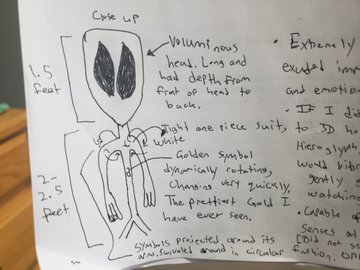 Close up
Voluminous
head. Long and
had depth from
front of head to
back.
1.5
feet
Tight one piece suit,
White
Golden symbol
dynamically rotating,
Changing very quickly,
The prettiest Gold I
have ever seen.
2-
2.5
feet
Symbols projected around its
arm. Swiveled around in circular fashion.
• Extremely
exuded
and emotion
• If I did
to 3D
Hieroglyph
would
gently
watching
• Capable of
Senses at